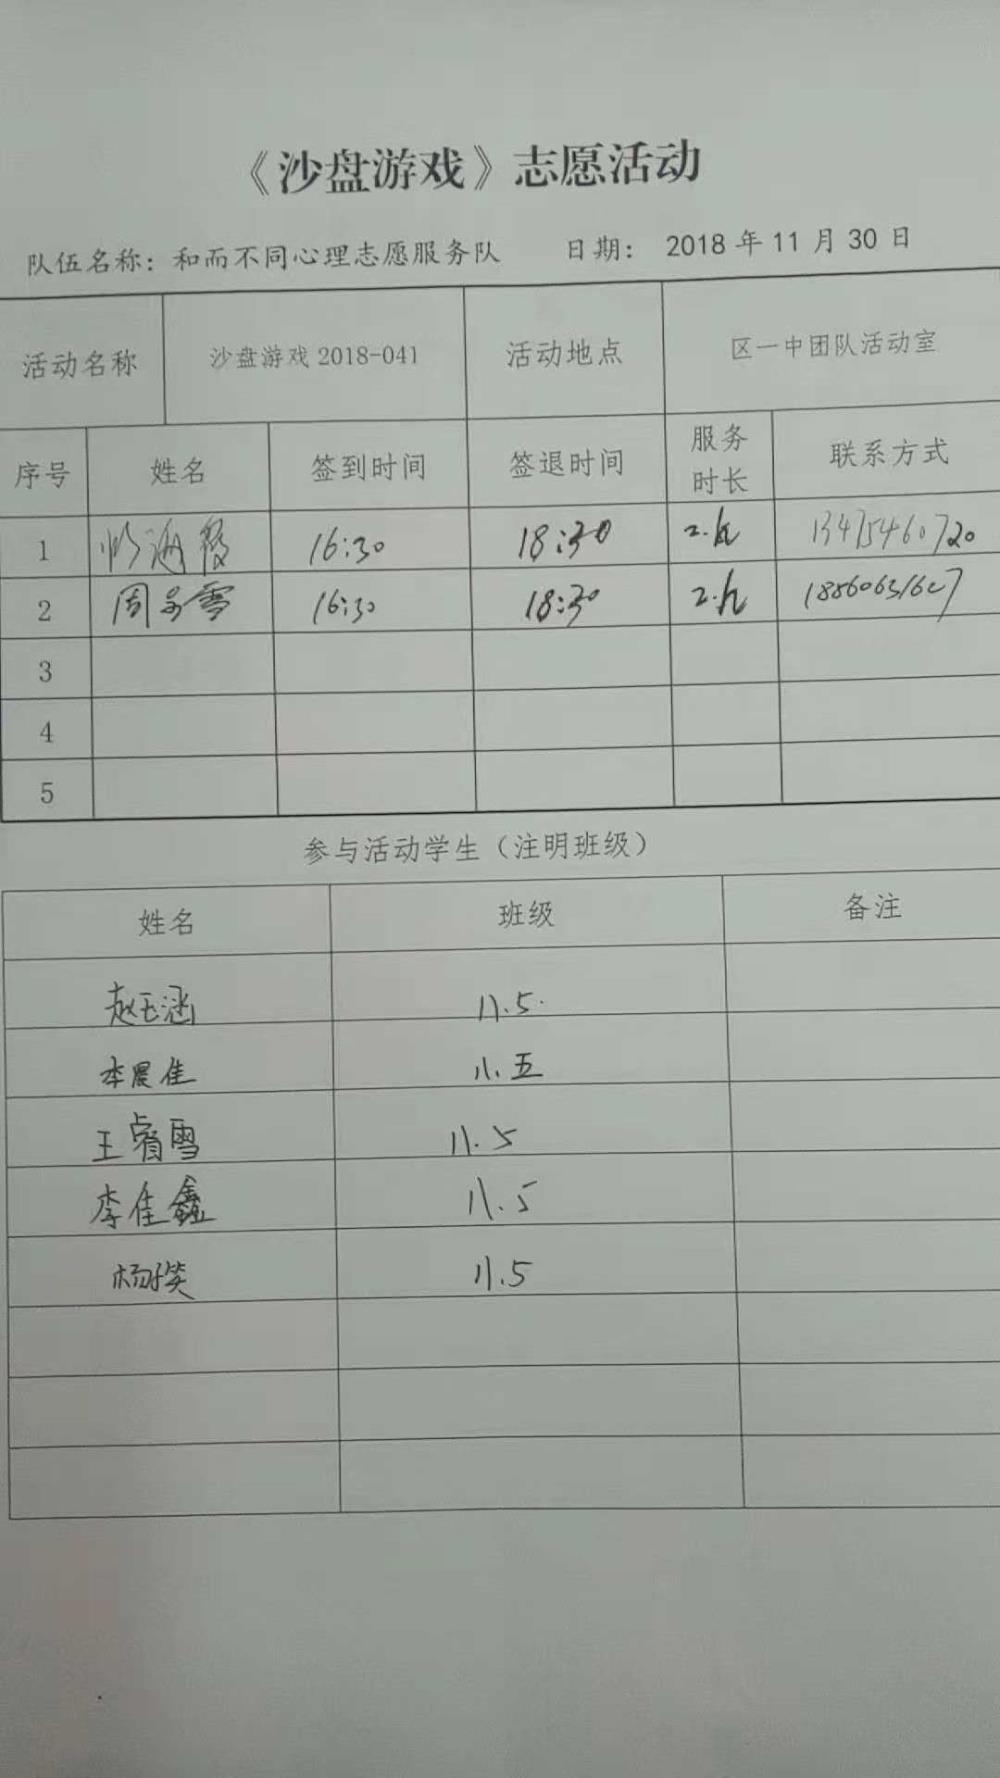 《沙盘游戏》志愿活动
队伍名称：和而不同心理志愿服务队 日期： 2018 年 11 月 30 日
活动名称 沙盘游戏 2018-041 活动地点 区一中团队活动室
序号 姓名 签到时间 签退时间 服务时长 联系方式
1 海霞 16:30 18:30 2.h 13475460720
2 周 雪 16:30 18:30 2.h
3
4
5
参与活动学生（注明班级）
姓名 班级 备注
赵玉涵 八.5.
李晨佳 八.五
王睿雪 八.5
李佳鑫 八.5
杨 八.5